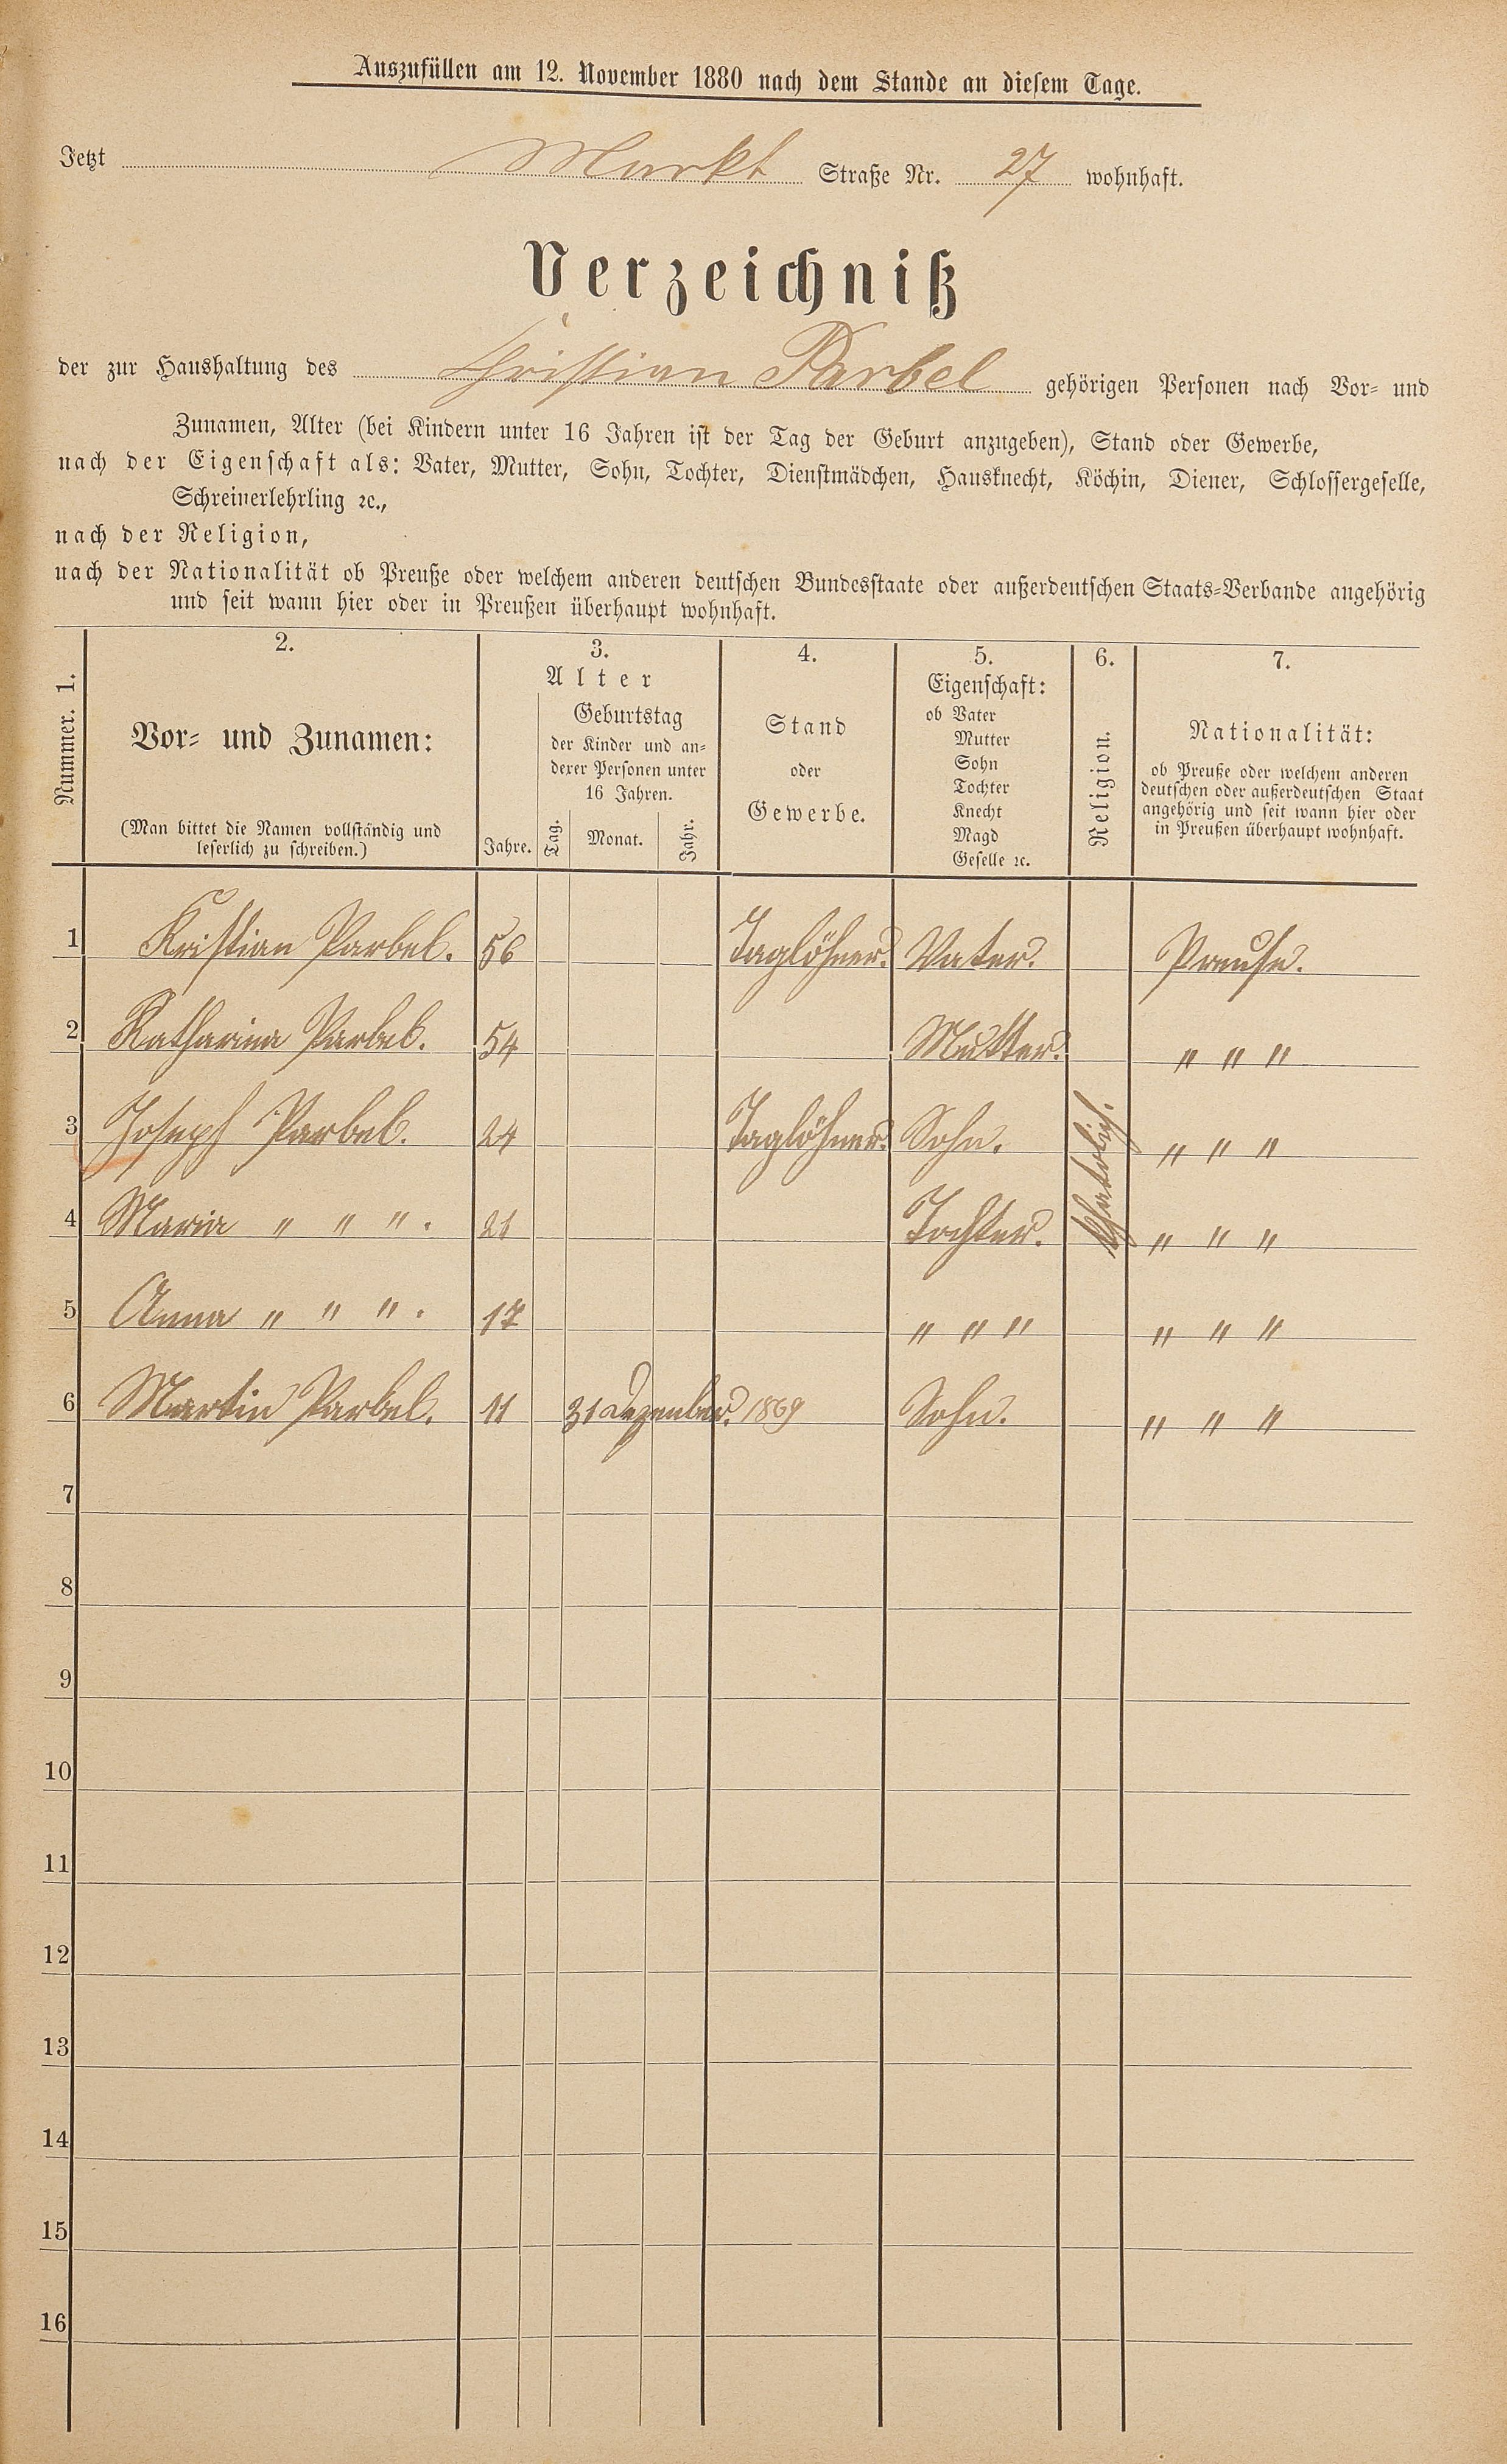 Auszufüllen am 12. November 1880 nach dem Stande an diesem Tage.
Jetzt Markt Straße Nr. 27 wohnhaft.
Verzeichniß
der zur Haushaltung des Christian Parbel gehörigen Personen nach Vor- und
Zunamen, Alter (bei Kindern unter 16 Jahren ist der Tag der Geburt anzugeben), Stand oder Gewerbe,
nach der Eigenschaft als: Vater, Mutter, Sohn, Tochter, Dienstmädchen, Hausknecht, Köchin, Diener, Schlossergeselle,
Schreinerlehrling ꝛc.,
nach der Religion,
nach der Nationalität ob Preuße oder welchem anderen deutschen Bundesstaate oder außerdeutschen Staats-Verbande angehörig
und seit wann hier oder in Preußen überhaupt wohnhaft.
Nummer. 1.
2.
Vor- und Zunamen:
(Man bittet die Namen vollständig und
leserlich zu schreiben.)
3.
Alter
Jahre.
Geburtstag
der Kinder und an-
derer Personen unter
16 Jahren.
Tag. Monat. Jahr.
4.
Stand
oder
Gewerbe.
5.
Eigenschaft:
ob Vater
Mutter
Sohn
Tochter
Knecht
Magd
Geselle ꝛc.
6.
Religion.
7.
Nationalität:
ob Preuße oder welchem anderen
deutschen oder außerdeutschen Staat
angehörig und seit wann hier oder
in Preußen überhaupt wohnhaft.
1 Kristian Parbel. 56 Taglöhner. Vater. Preuße.
2 Katharina Parbel. 54 Mutter. " " "
3 Joseph Parbel. 24 Taglöhner. Sohn. " " "
4 Maria " " ". 21 Tochter. " " "
Khatolish.
5 Anna " " ". 17 " " " " " "
6 Martin Parbel. 11 31 Dezember. 1869 Sohn. " " "
7
8
9
10
11
12
13
14
15
16